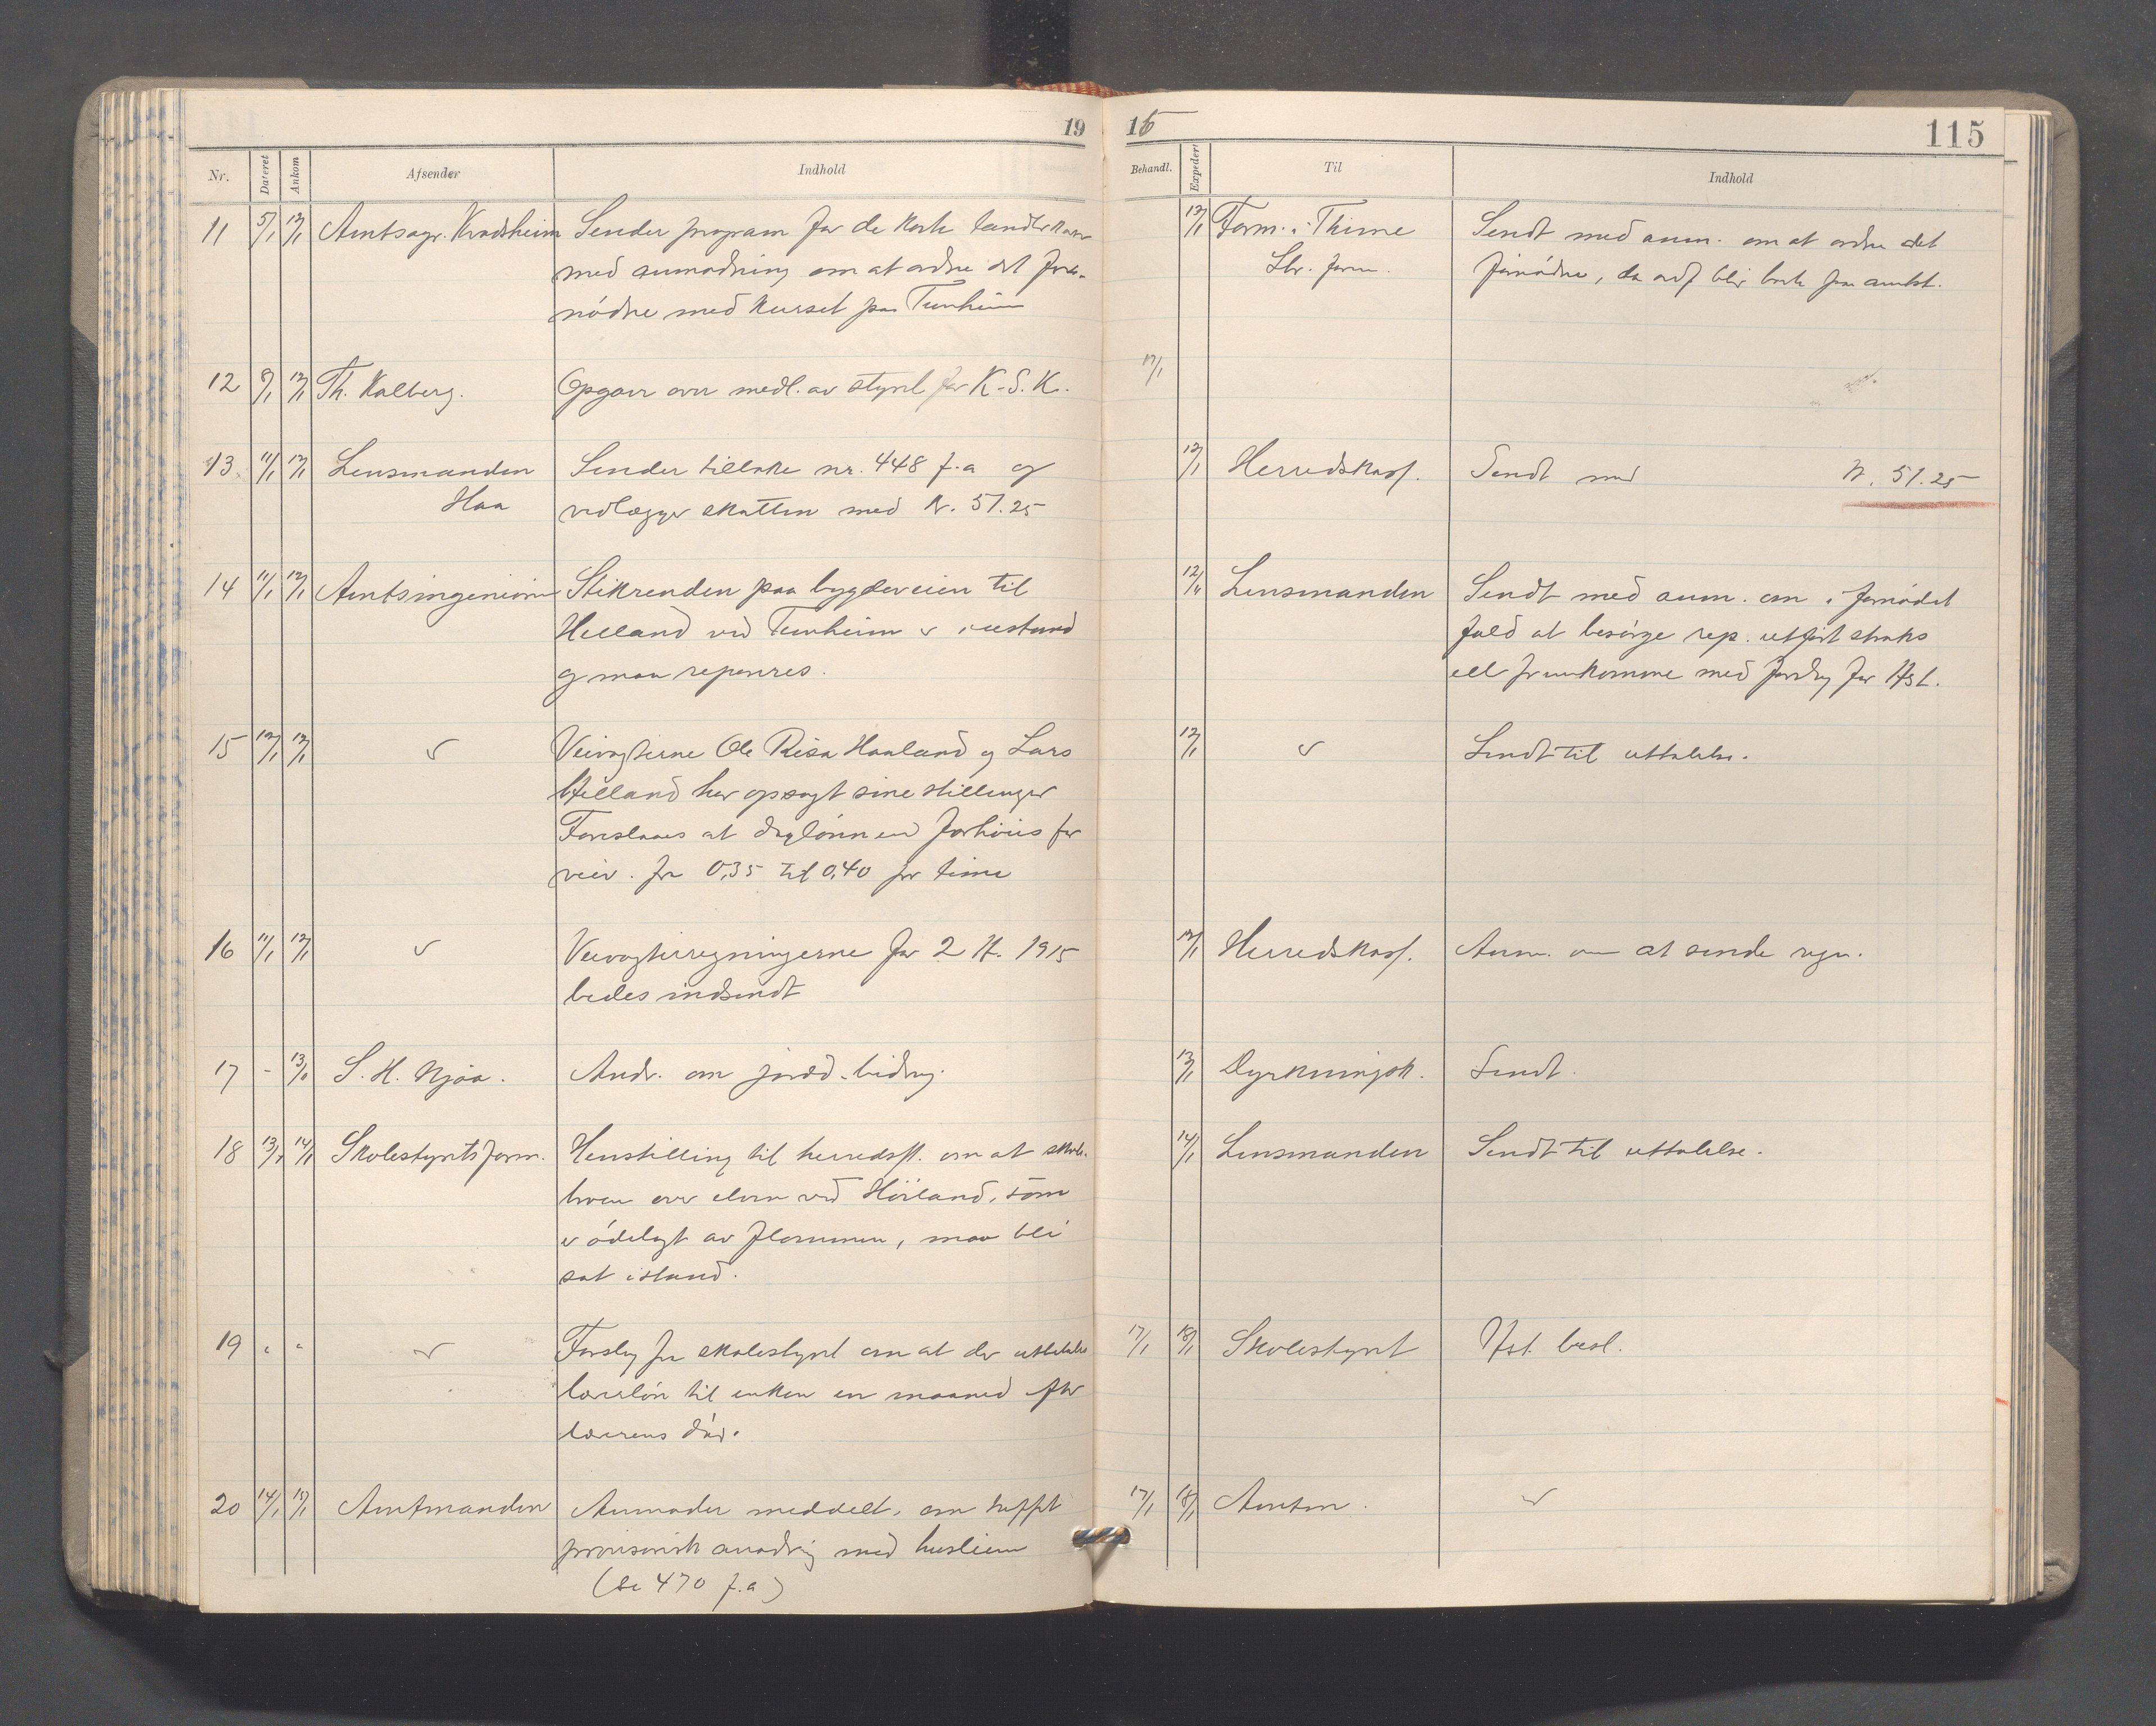 19
Nr. Dateret Ankom Afsender Indhold
11 5/1 12/1 Amtsagr. Kvadsheim Sender program for de korte landbr.kurs
med anmodning om at ordne det forn.
nødne med kurset paa Tunheim
12 8/1 12/1 Th. Kalberg. Opgave over medl. av styret for K.S.K.
13 11/1 12/1 Lensmanden Sender tilbake nr. 448 f.a og
Haa vedlægger skatten med Kr. 51.25
14 11/1 12/1 Amtsingeniøren Stikrenden paa bygdeveien til
Helland ved Tunheim er i ustand
og maa reparires.
15 12/1 12/1 Veivogterne Ole Risa Haaland og Lars
Helland har opsagt sine stillinger
Foreslaaes at daglønnen forhøies for
veiv. fra 0,35 til 0,40 pr time
16 11/1 12/1 Veivogterregningerne for 2 H. 1915
bedes indsendt
17 - 13/1 S. H. Njaa. Andr. om jordd.bidrag.
18 13/1 14/1 Skolestyrets form. Henstilling til herredsst. om at skole-
broen over elven ved Höiland, som
er ødelagt av flommen, maa bli
sat istand.
19 " " Forslag fra skolestyret om at der utbetales
lærerløn til enken en maaned efter
lærerens død.
20 14/1 15/1 Amtmanden Anmoder meddelt, om truffet
provisorisk anordning med husleien
(Se 470 f.a)
16 115
Behandl. Expedert Til Indhold
12/1 Form. i Thime Sendt med anm. om at ordne det
Lbr. form. fornødne, da avg blir brukt fra amtet.
17/1
12/1 Herredskass. Sendt med Kr. 51.25
12/1 Lensmanden Sendt med anm. om i fornødent
fald at besørge rep. utført straks
ell fremkomme med forslag for Hst.
12/1 Sendt til uttalelse.
12/1 Herredskass. Anm. om at sende regn.
13/1 Dyrkningsk. Sendt.
14/1 Lensmanden Sendt til uttalelse.
17/1 18/1 Skolestyret Hst. besl.
17/1 18/1 Amtm.